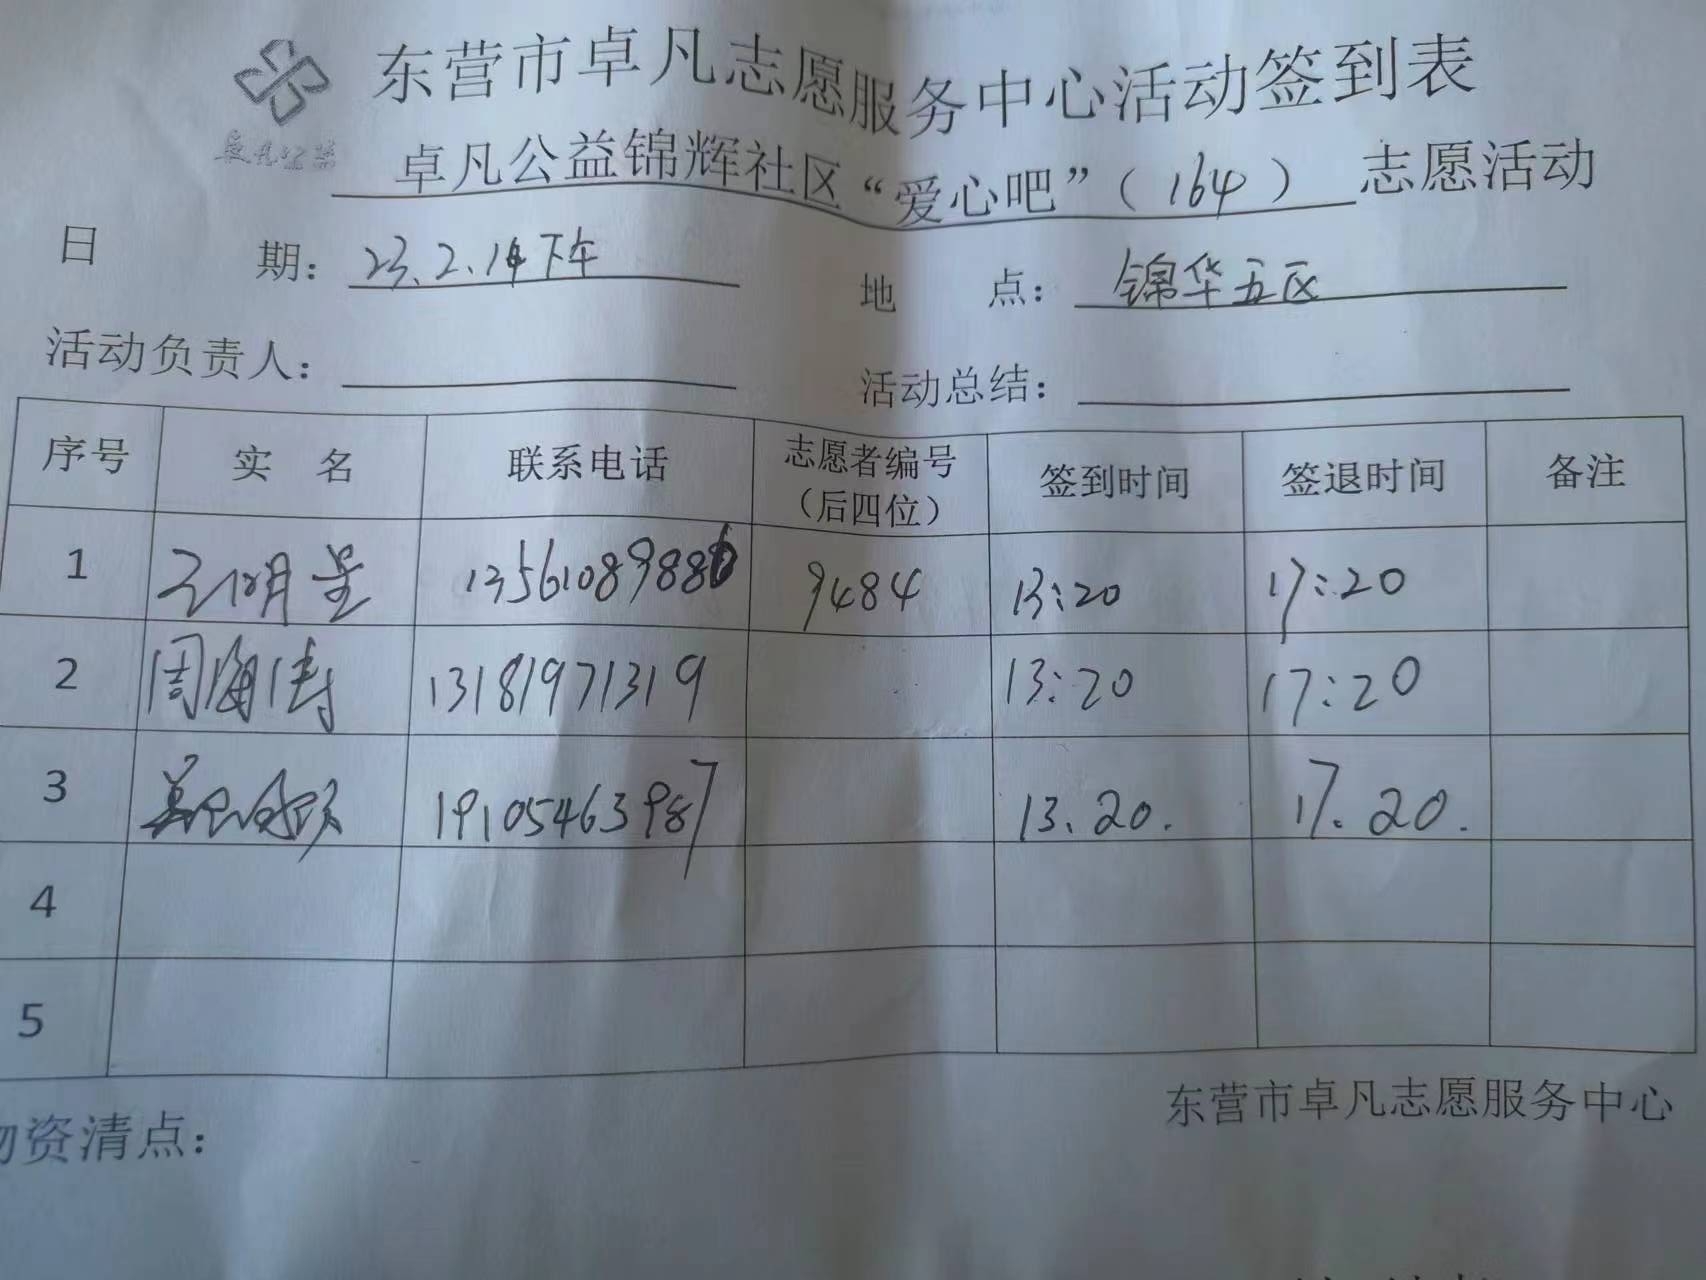 东营市卓凡志愿服务中心活动签到表
卓凡公益
卓凡公益锦辉社区“爱心吧”(164) 志愿活动
日 期: 23.2.14下午 地 点: 锦华五区
活动负责人: 活动总结:
序号 实 名 联系电话 志愿者编号(后四位) 签到时间 签退时间 备注
1 13561089886 9484 13:20 17:20
2 周海涛 13181971319 13:20 17:20
3 19105463987 13.20. 17.20.
4
5
东营市卓凡志愿服务中心
物资清点: